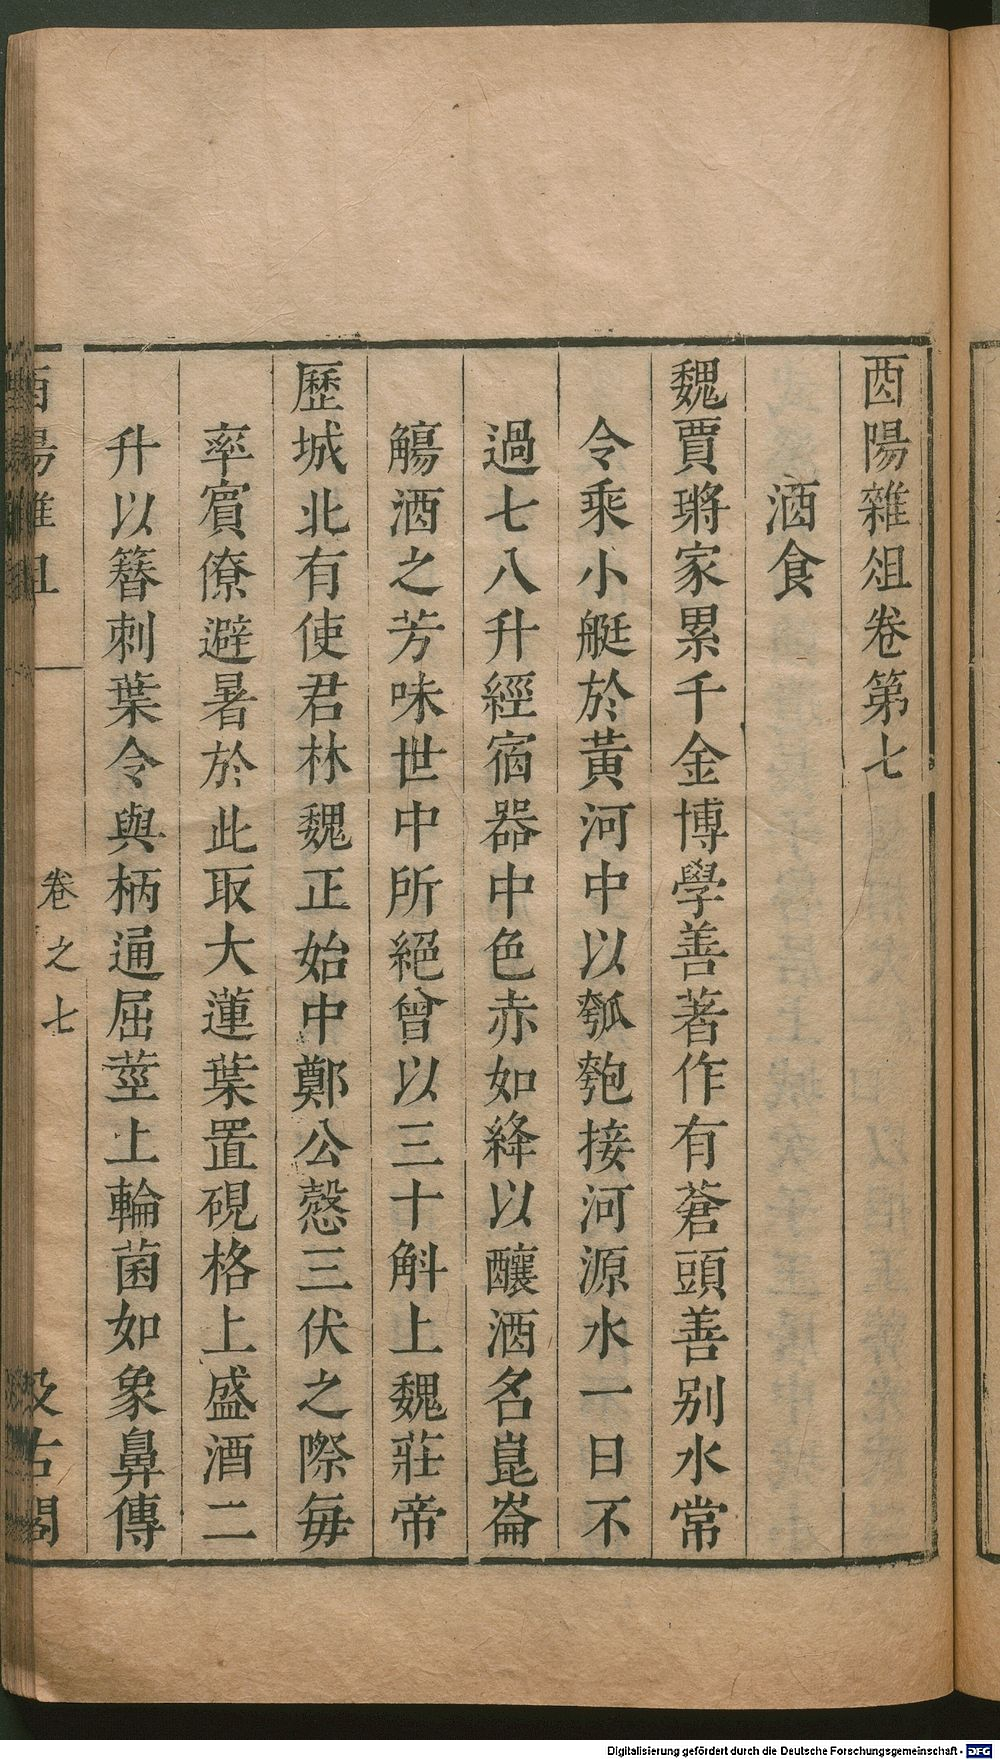 酉陽雜俎卷第七
酒食
魏賈𤩽家累千金博學善著作有蒼頭善別水常
令乘小艇於黃河中以瓠匏接河源水一日不
過七八升經宿器中色赤如絳以釀酒名崑崙
觴酒之芳味世中所絕曾以三十斛上魏莊帝
歷城北有使君林魏正始中鄭公愨三伏之際每
率賓僚避暑於此取大蓮葉置硯格上盛酒二
升以簪刺葉令與柄通屈莖上輪菌如象鼻傳
酉陽雜俎
卷之七
汲古閣
Digitalisierung gefördert durch die Deutsche Forschungsgemeinschaft - DFG